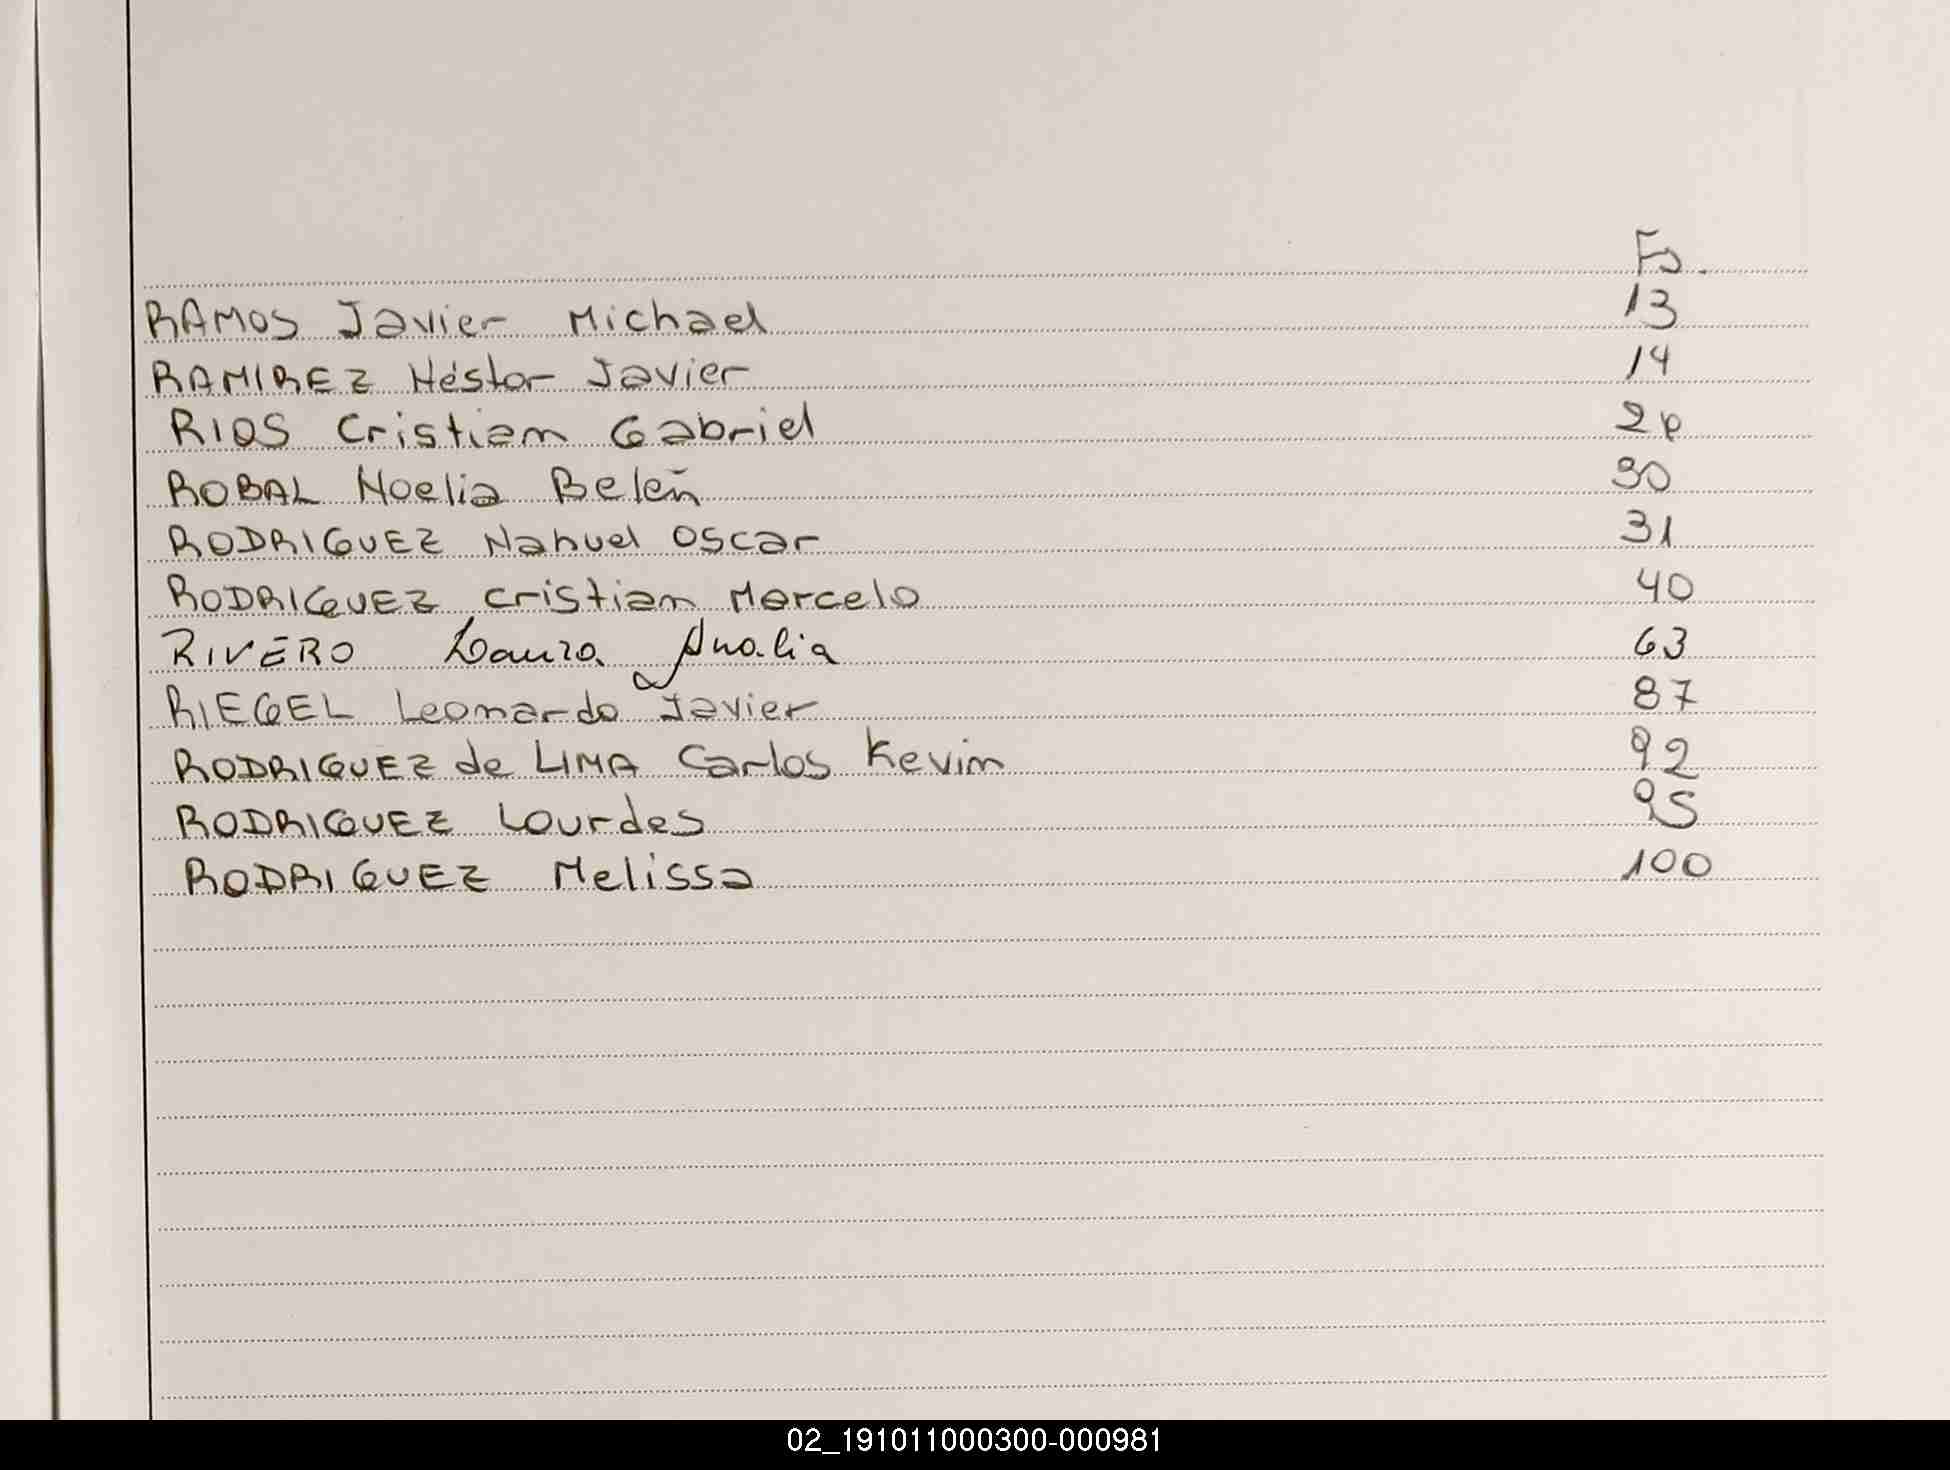 Fs.
RAMOS Javier Michael 13
RAMIREZ Héstor Javier 14
RIOS Cristian Gabriel
ROBAL Noelia Belén 30
RODRIGUEZ Nahuel Oscar 31
RODRIGUEZ Cristian Marcelo 40
RIVERO Laura Analia 63
RIEGEL Leonardo Javier 87
RODRIGUEZ de LIMA Carlos Kevin 92
RODRIGUEZ Lourdes 95
RODRIGUEZ Melissa 100
02_191011000300-000981